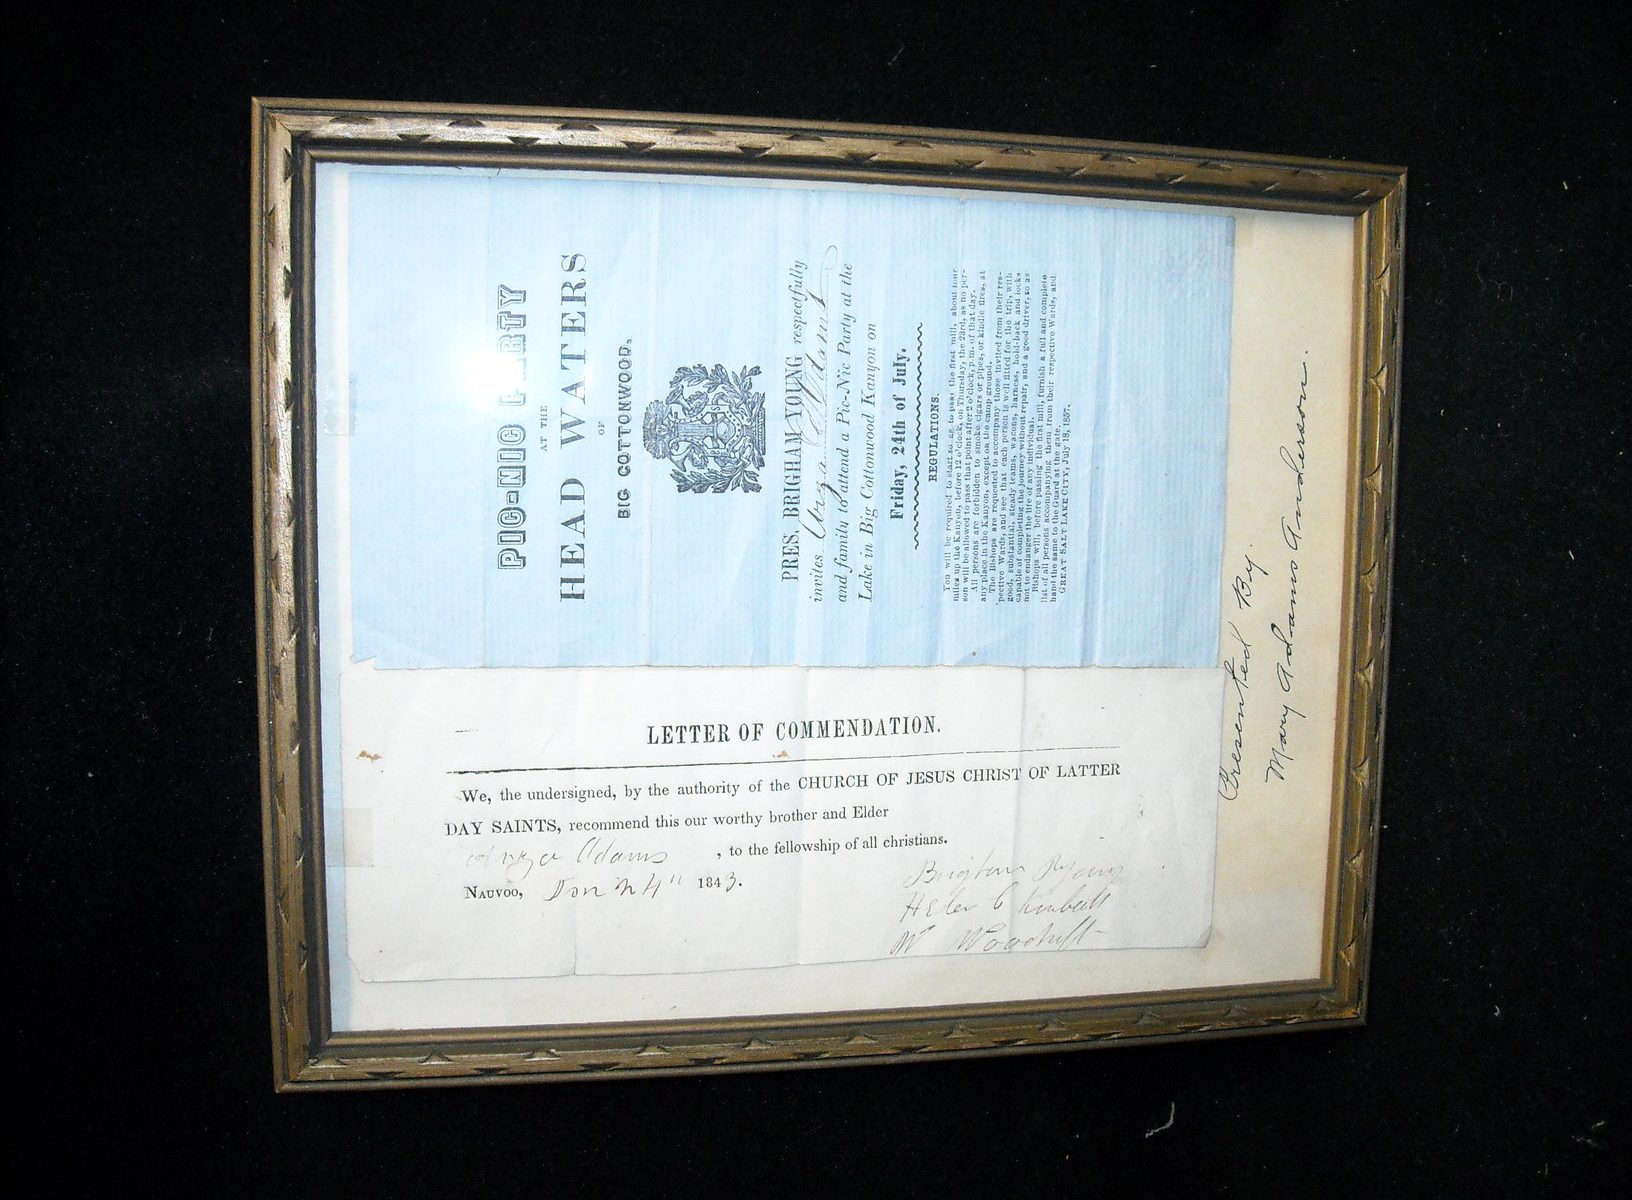 PIC-NIC PARTY
AT THE
HEAD WATERS
OF
BIG COTTONWOOD.
PRES. BRIGHAM YOUNG respectfully
invites Arza Adams
and family to attend a Pic-Nic Party at the
Lake in Big Cottonwood Kanyon on
Friday, 24th of July.
REGULATIONS.
You will be required to start so as to pass the first mill, about four
miles up the Kanyon, before 12 o'clock, on Thursday, the 23rd, as no per-
son will be allowed to pass that point after 2 o'clock, p.m. of that day.
All persons are forbidden to smoke cigars or pipes, or kindle fires, at
any place in the Kanyon, except on the camp ground.
The Bishops are requested to accompany those invited from their res-
pective Wards, and see that each person is well fitted for the trip, with
good, substantial, steady teams, wagons, harness, hold-back and locks
capable of completing the journey without repair, and a good driver, so as
not to endanger the life of any individual.
Bishops will, before passing the first mill, furnish a full and complete
list of all persons accompanying them from their respective Wards, and
hand the same to the Guard at the gate.
GREAT SALT LAKE CITY, July 18, 1857.
LETTER OF COMMENDATION.
We, the undersigned, by the authority of the CHURCH OF JESUS CHRIST OF LATTER
DAY SAINTS, recommend this our worthy brother and Elder
Arza Adams , to the fellowship of all christians.
NAUVOO, 4" 1843.
Brigham Young
Heber C Kimball
W Woodruff
Presented By.
Mary Adams Anderson.